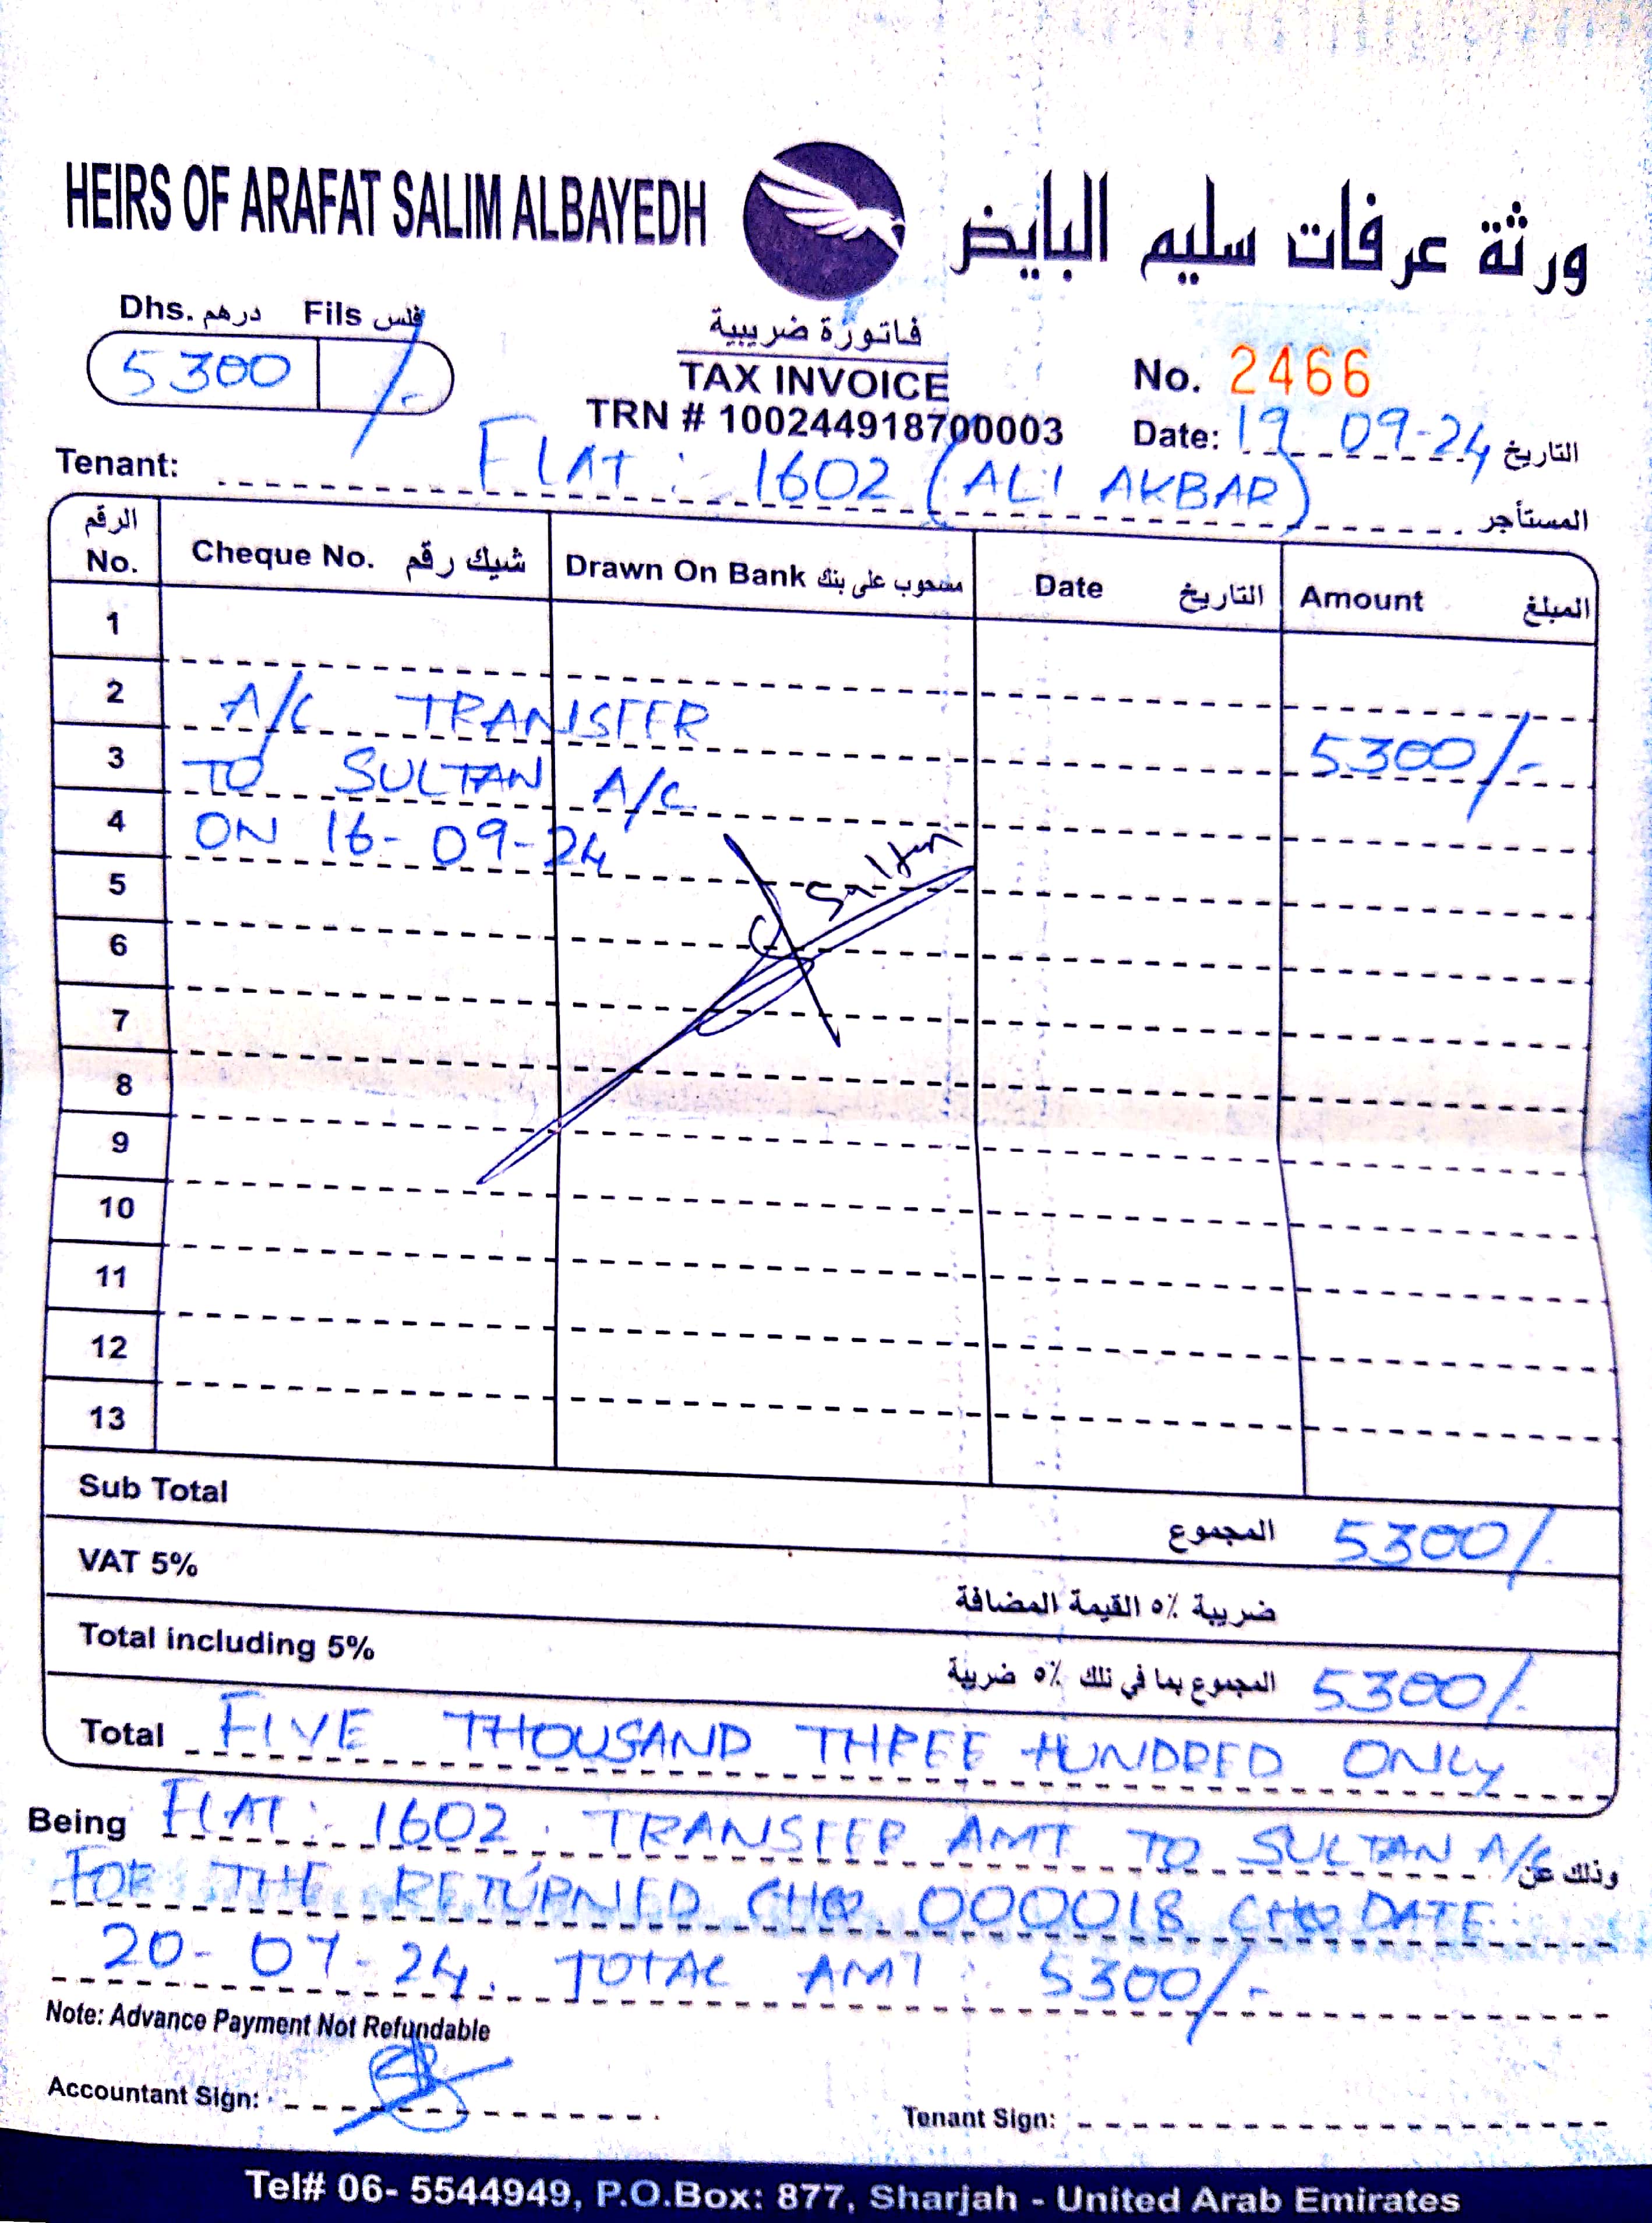 HEIRS OF ARAFAT SALIM ALBAYEDH ورثة عرفات سليم البايض
Dhs. درهم Fils فلس
5300 /-
فاتورة ضريبية
TAX INVOICE
TRN # 100244918700003
No. 2466
Date: 19-09-24 التاريخ
Tenant: FLAT: 1602 (ALI AKBAR) المستأجر
الرقم No. Cheque No. شيك رقم Drawn On Bank مسحوب على بنك Date التاريخ Amount المبلغ
1
2 A/C TRANSFER 5300/-
3 TO SULTAN A/C
4 ON 16-09-24
5 Sultan
6
7
8
9
10
11
12
13
Sub Total المجموع 5300/-
VAT 5% ضريبة ٥٪ القيمة المضافة
Total including 5% المجموع بما في ذلك ٥٪ ضريبة 5300/-
Total FIVE THOUSAND THREE HUNDRED ONLY
Being FLAT: 1602. TRANSFER AMT TO SULTAN A/C وذلك عن
FOR THE RETURNED CHQ 000018 CHQ DATE:
20-07-24. TOTAL AMT: 5300/-
Note: Advance Payment Not Refundable
Accountant Sign:
Tenant Sign:
Tel# 06- 5544949, P.O.Box: 877, Sharjah - United Arab Emirates